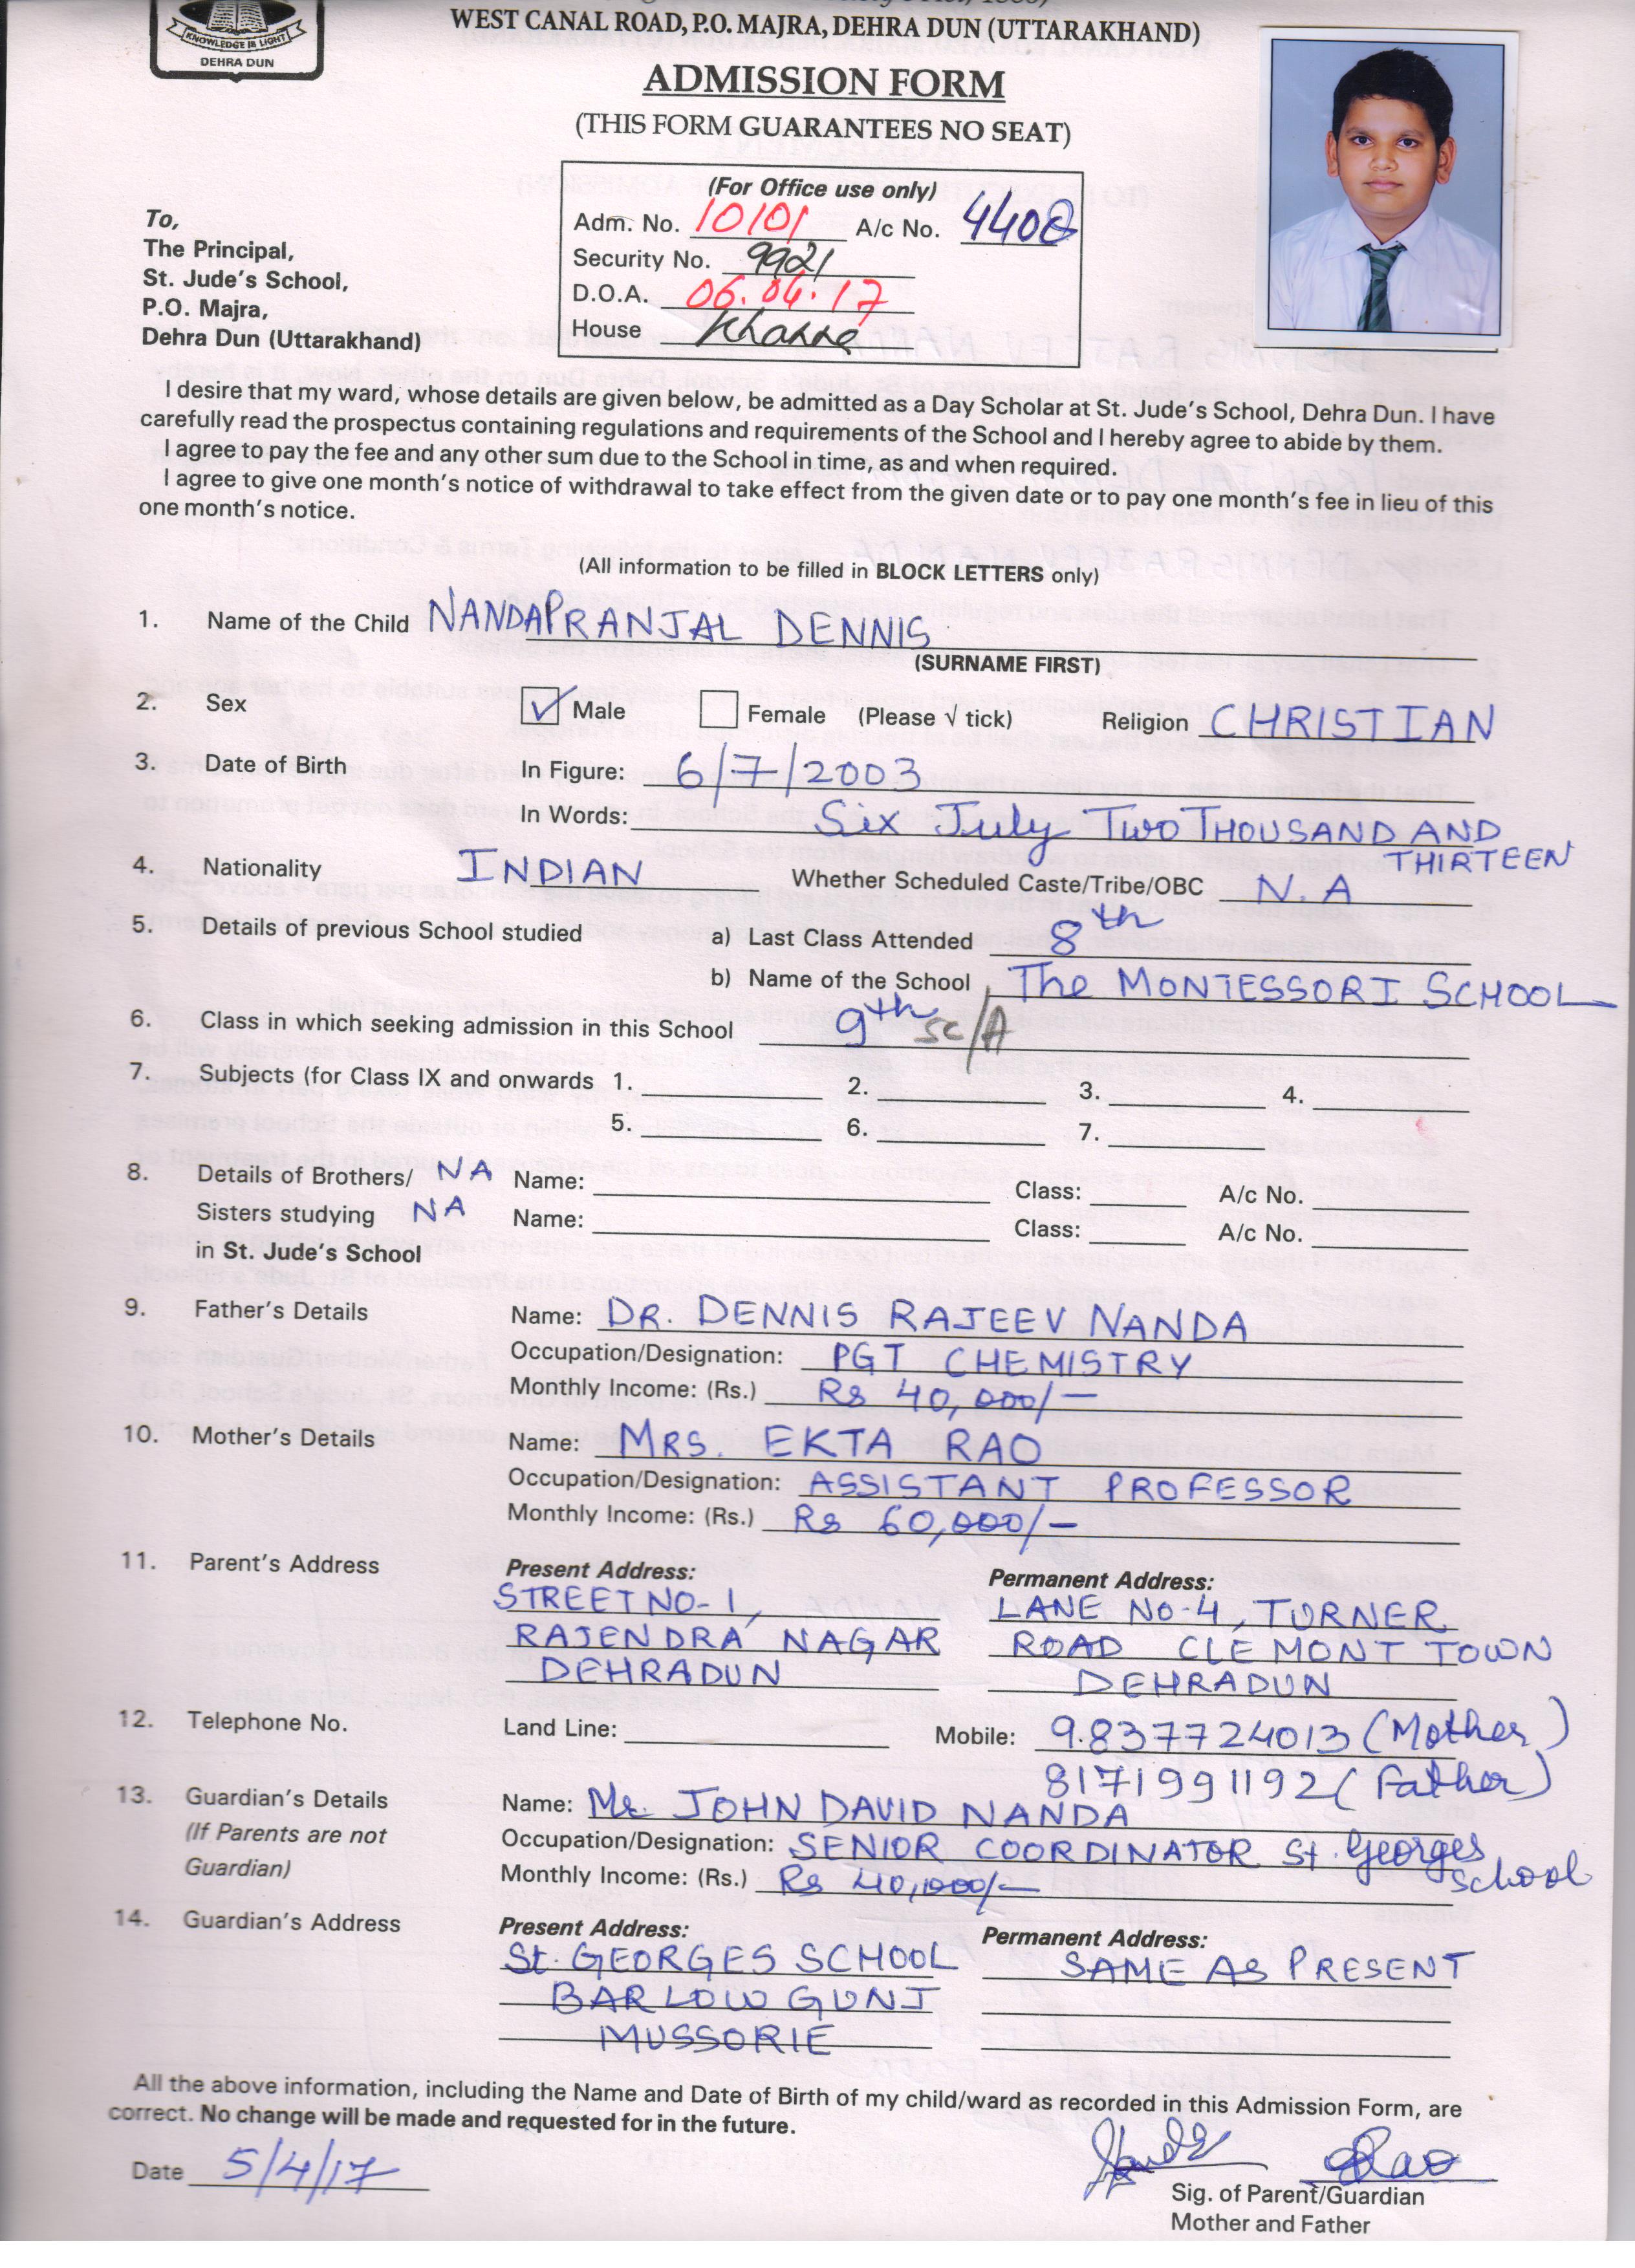 KNOWLEDGE IS LIGHT
DEHRA DUN
WEST CANAL ROAD, P.O. MAJRA, DEHRA DUN (UTTARAKHAND)
ADMISSION FORM
(THIS FORM GUARANTEES NO SEAT)
(For Office use only)
Adm. No. 10101 A/c No. 4408
Security No. 9921
D.O.A. 06.04.17
House Khanna
To,
The Principal,
St. Jude's School,
P.O. Majra,
Dehra Dun (Uttarakhand)
I desire that my ward, whose details are given below, be admitted as a Day Scholar at St. Jude's School, Dehra Dun. I have
carefully read the prospectus containing regulations and requirements of the School and I hereby agree to abide by them.
I agree to pay the fee and any other sum due to the School in time, as and when required.
I agree to give one month's notice of withdrawal to take effect from the given date or to pay one month's fee in lieu of this
one month's notice.
(All information to be filled in BLOCK LETTERS only)
1. Name of the Child NANDA PRANJAL DENNIS
(SURNAME FIRST)
2. Sex ☑ Male ☐ Female (Please √ tick) Religion CHRISTIAN
3. Date of Birth In Figure: 6/7/2003
In Words: Six July Two THOUSAND AND
THIRTEEN
4. Nationality INDIAN Whether Scheduled Caste/Tribe/OBC N.A
5. Details of previous School studied a) Last Class Attended 8th
b) Name of the School The MONTESSORI SCHOOL
6. Class in which seeking admission in this School 9th SC/A
7. Subjects (for Class IX and onwards 1. 2. 3. 4.
5. 6. 7.
8. Details of Brothers/ NA Name: Class: A/c No.
Sisters studying NA Name: Class: A/c No.
in St. Jude's School
9. Father's Details Name: DR. DENNIS RAJEEV NANDA
Occupation/Designation: PGT CHEMISTRY
Monthly Income: (Rs.) Rs 40,000/-
10. Mother's Details Name: MRS. EKTA RAO
Occupation/Designation: ASSISTANT PROFESSOR
Monthly Income: (Rs.) Rs 60,000/-
11. Parent's Address Present Address: Permanent Address:
STREET NO-1, LANE No-4, TURNER
RAJENDRA NAGAR ROAD CLEMONT TOWN
DEHRADUN DEHRADUN
12. Telephone No. Land Line: Mobile: 9837724013 (Mother)
8171991192 (Father)
13. Guardian's Details Name: Mr. JOHN DAVID NANDA
(If Parents are not Occupation/Designation: SENIOR COORDINATOR St. Georges
School
Guardian) Monthly Income: (Rs.) Rs 40,000/-
14. Guardian's Address Present Address: Permanent Address:
St. GEORGES SCHOOL SAME AS PRESENT
BARLOW GUNJ
MUSSORIE
All the above information, including the Name and Date of Birth of my child/ward as recorded in this Admission Form, are
correct. No change will be made and requested for in the future.
Date 5/4/17
Rao
Sig. of Parent/Guardian
Mother and Father